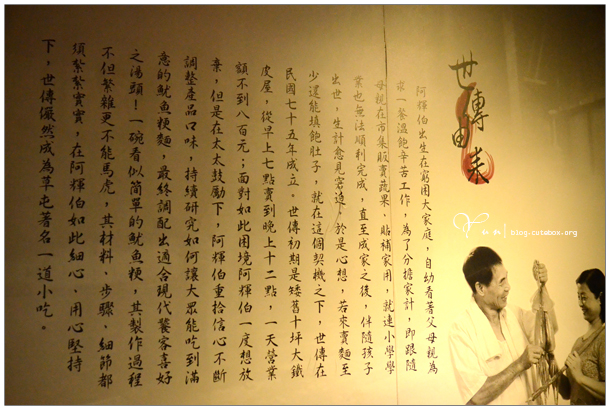 世傳由來
阿輝伯出生在窮困大家庭，自幼看著父母親為
求一餐溫飽辛苦工作，為了分擔家計，即跟隨
母親在市集販賣蔬果、貼補家用，就連小學學
業也無法順利完成，直至成家之後，伴隨孩子
出世，生計愈見窘迫，於是心想，若來賣麵至
少還能填飽肚子，就在這個契機之下，世傳在
民國七十五年成立。世傳初期是矮舊十坪大鐵
皮屋，從早上七點賣到晚上十二點，一天營業
額不到八百元；面對如此困境阿輝伯一度想放
棄，但是在太太鼓勵下，阿輝伯重拾信心不斷
調整產品口味，持續研究如何讓大眾能吃到滿
意的魷魚粳麵，最終調配出適合現代饕客喜好
之湯頭！一碗看似簡單的魷魚粳，其製作過程
不但繁雜更不能馬虎，其材料、步驟、細節都
須紮紮實實，在阿輝伯如此細心、用心堅持
下，世傳儼然成為草屯著名一道小吃。
blog-cutebox.org